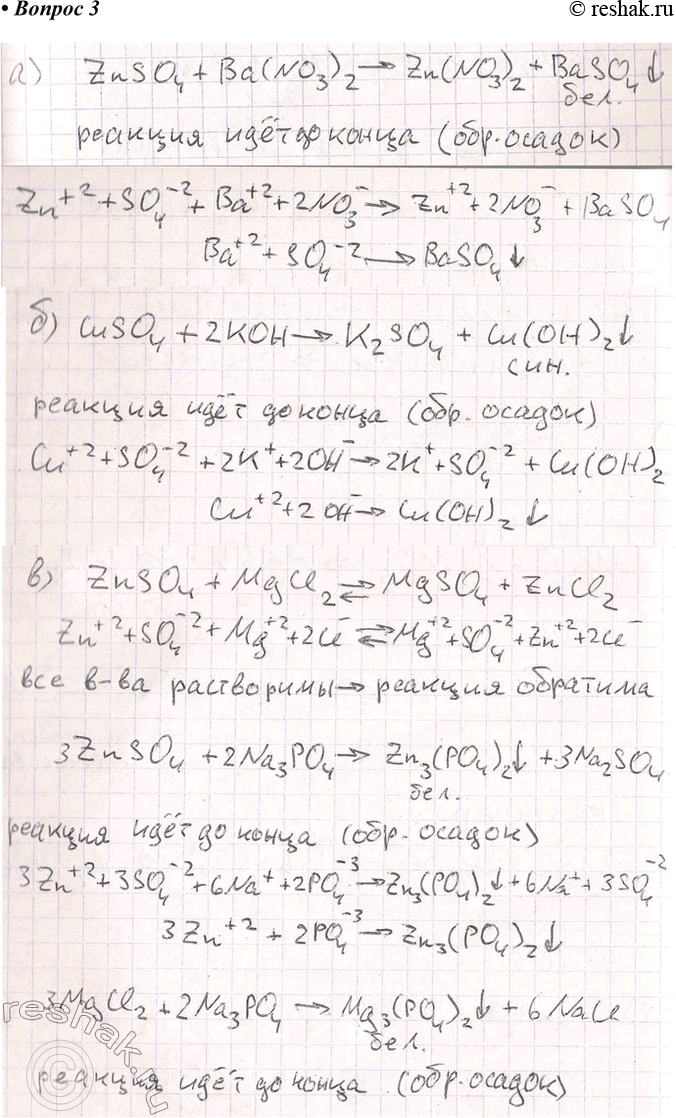 • Вопрос 3
© reshak.ru
а) ZnSO₄ + Ba(NO₃)₂ → Zn(NO₃)₂ + BaSO₄↓
бел.
реакция идёт до конца (обр. осадок)
Zn⁺² + SO₄⁻² + Ba⁺² + 2NO₃⁻ → Zn⁺² + 2NO₃⁻ + BaSO₄
Ba⁺² + SO₄⁻² → BaSO₄↓
б) CuSO₄ + 2KOH → K₂SO₄ + Cu(OH)₂↓
син.
реакция идёт до конца (обр. осадок)
Cu⁺² + SO₄⁻² + 2K⁺ + 2OH⁻ → 2K⁺ + SO₄⁻² + Cu(OH)₂
Cu⁺² + 2OH⁻ → Cu(OH)₂↓
в) ZnSO₄ + MgCl₂ ⇄ MgSO₄ + ZnCl₂
Zn⁺² + SO₄⁻² + Mg⁺² + 2Cl⁻ ⇄ Mg⁺² + SO₄⁻² + Zn⁺² + 2Cl⁻
все в-ва растворимы → реакция обратима
3ZnSO₄ + 2Na₃PO₄ → Zn₃(PO₄)₂↓ + 3Na₂SO₄
бел.
реакция идёт до конца (обр. осадок)
3Zn⁺² + 3SO₄⁻² + 6Na⁺ + 2PO₄⁻³ → Zn₃(PO₄)₂↓ + 6Na⁺ + 3SO₄⁻²
3Zn⁺² + 2PO₄⁻³ → Zn₃(PO₄)₂↓
3MgCl₂ + 2Na₃PO₄ → Mg₃(PO₄)₂↓ + 6NaCl
бел.
реакция идёт до конца (обр. осадок)
reshak.ru